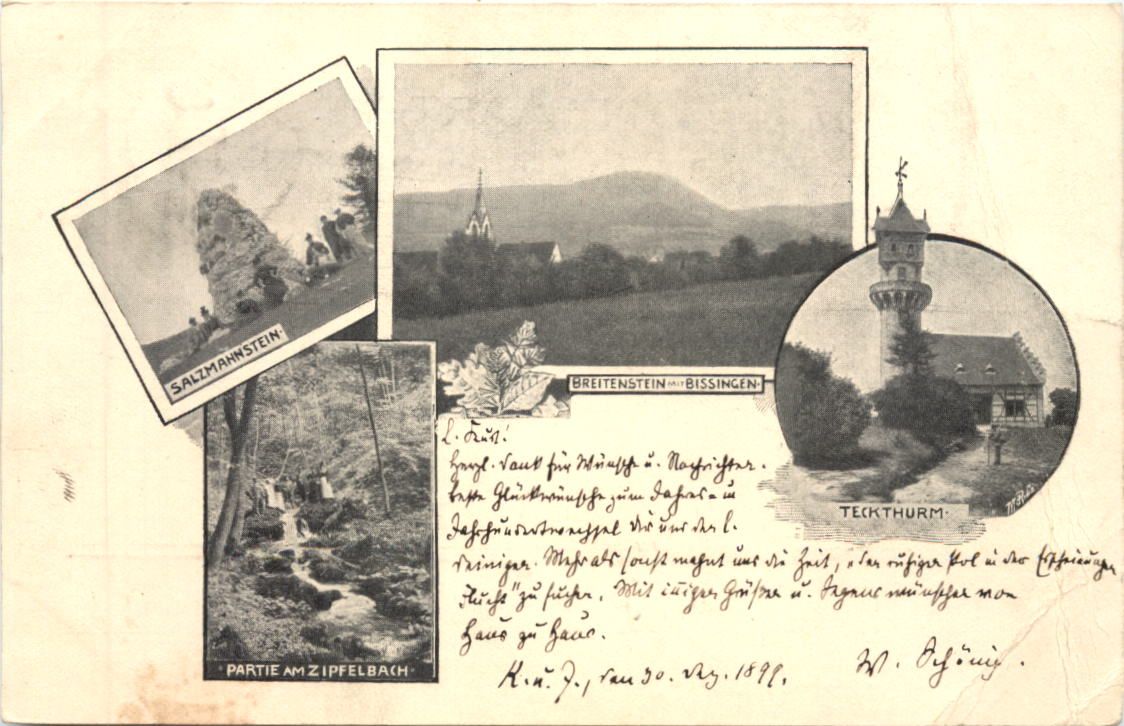 SALZMANNSTEIN.
BREITENSTEIN MIT BISSINGEN.
TECKTHURM.
PARTIE AM ZIPFELBACH.
L. Kurt!
Herzl. Dank für Wünsche u. Nachrichten.
Beste Glückwünsche zum Jahres- u
Jahrhundertwechsel Dir und den l.
Deinigen. Mehr als sonst mahnt uns die Zeit, „den ruhigen Pol in der Erscheinungen
Flucht" zu suchen. Mit innigen Grüßen u. Segenswünschen von
Haus zu Haus.
K. u. T., den 30. Dez. 1899.
W. Schönig.